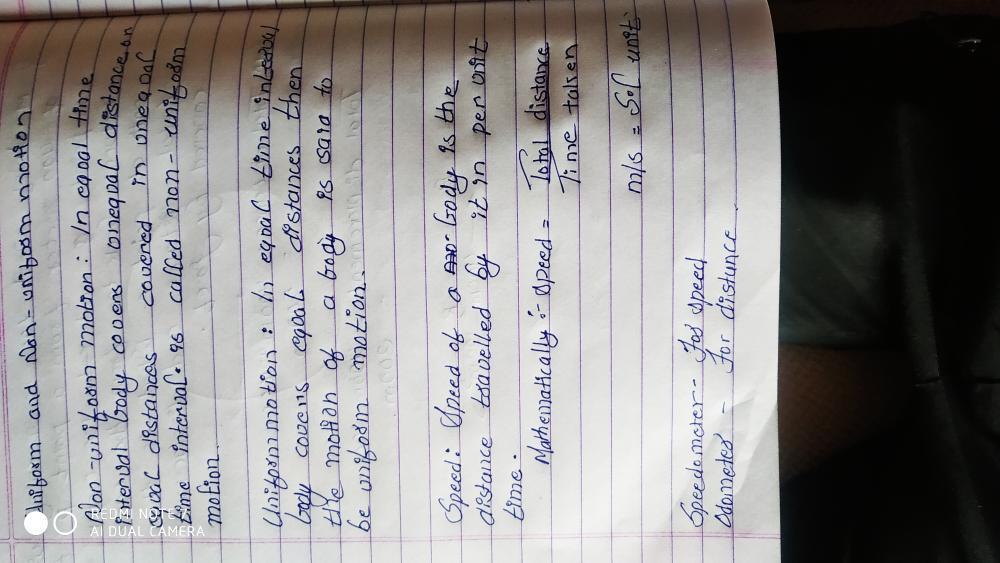 Uniform and Non-uniform motion
Non-uniform motion: In equal time
interval body covers unequal distance on
equal distances covered in unequal
time interval. is called non-uniform
motion.
Uniform motion: In equal time interval
body covers equal distances then
the motion of a body is said to
be uniform motion.
Speed: Speed of a body is the
distance travelled by it in per unit
time.
Mathematically :- Speed = Total distance
Time taken
m/s = S.I unit.
Speedometer - For speed
Odometer - For distance.
REDMI NOTE 7
AI DUAL CAMERA